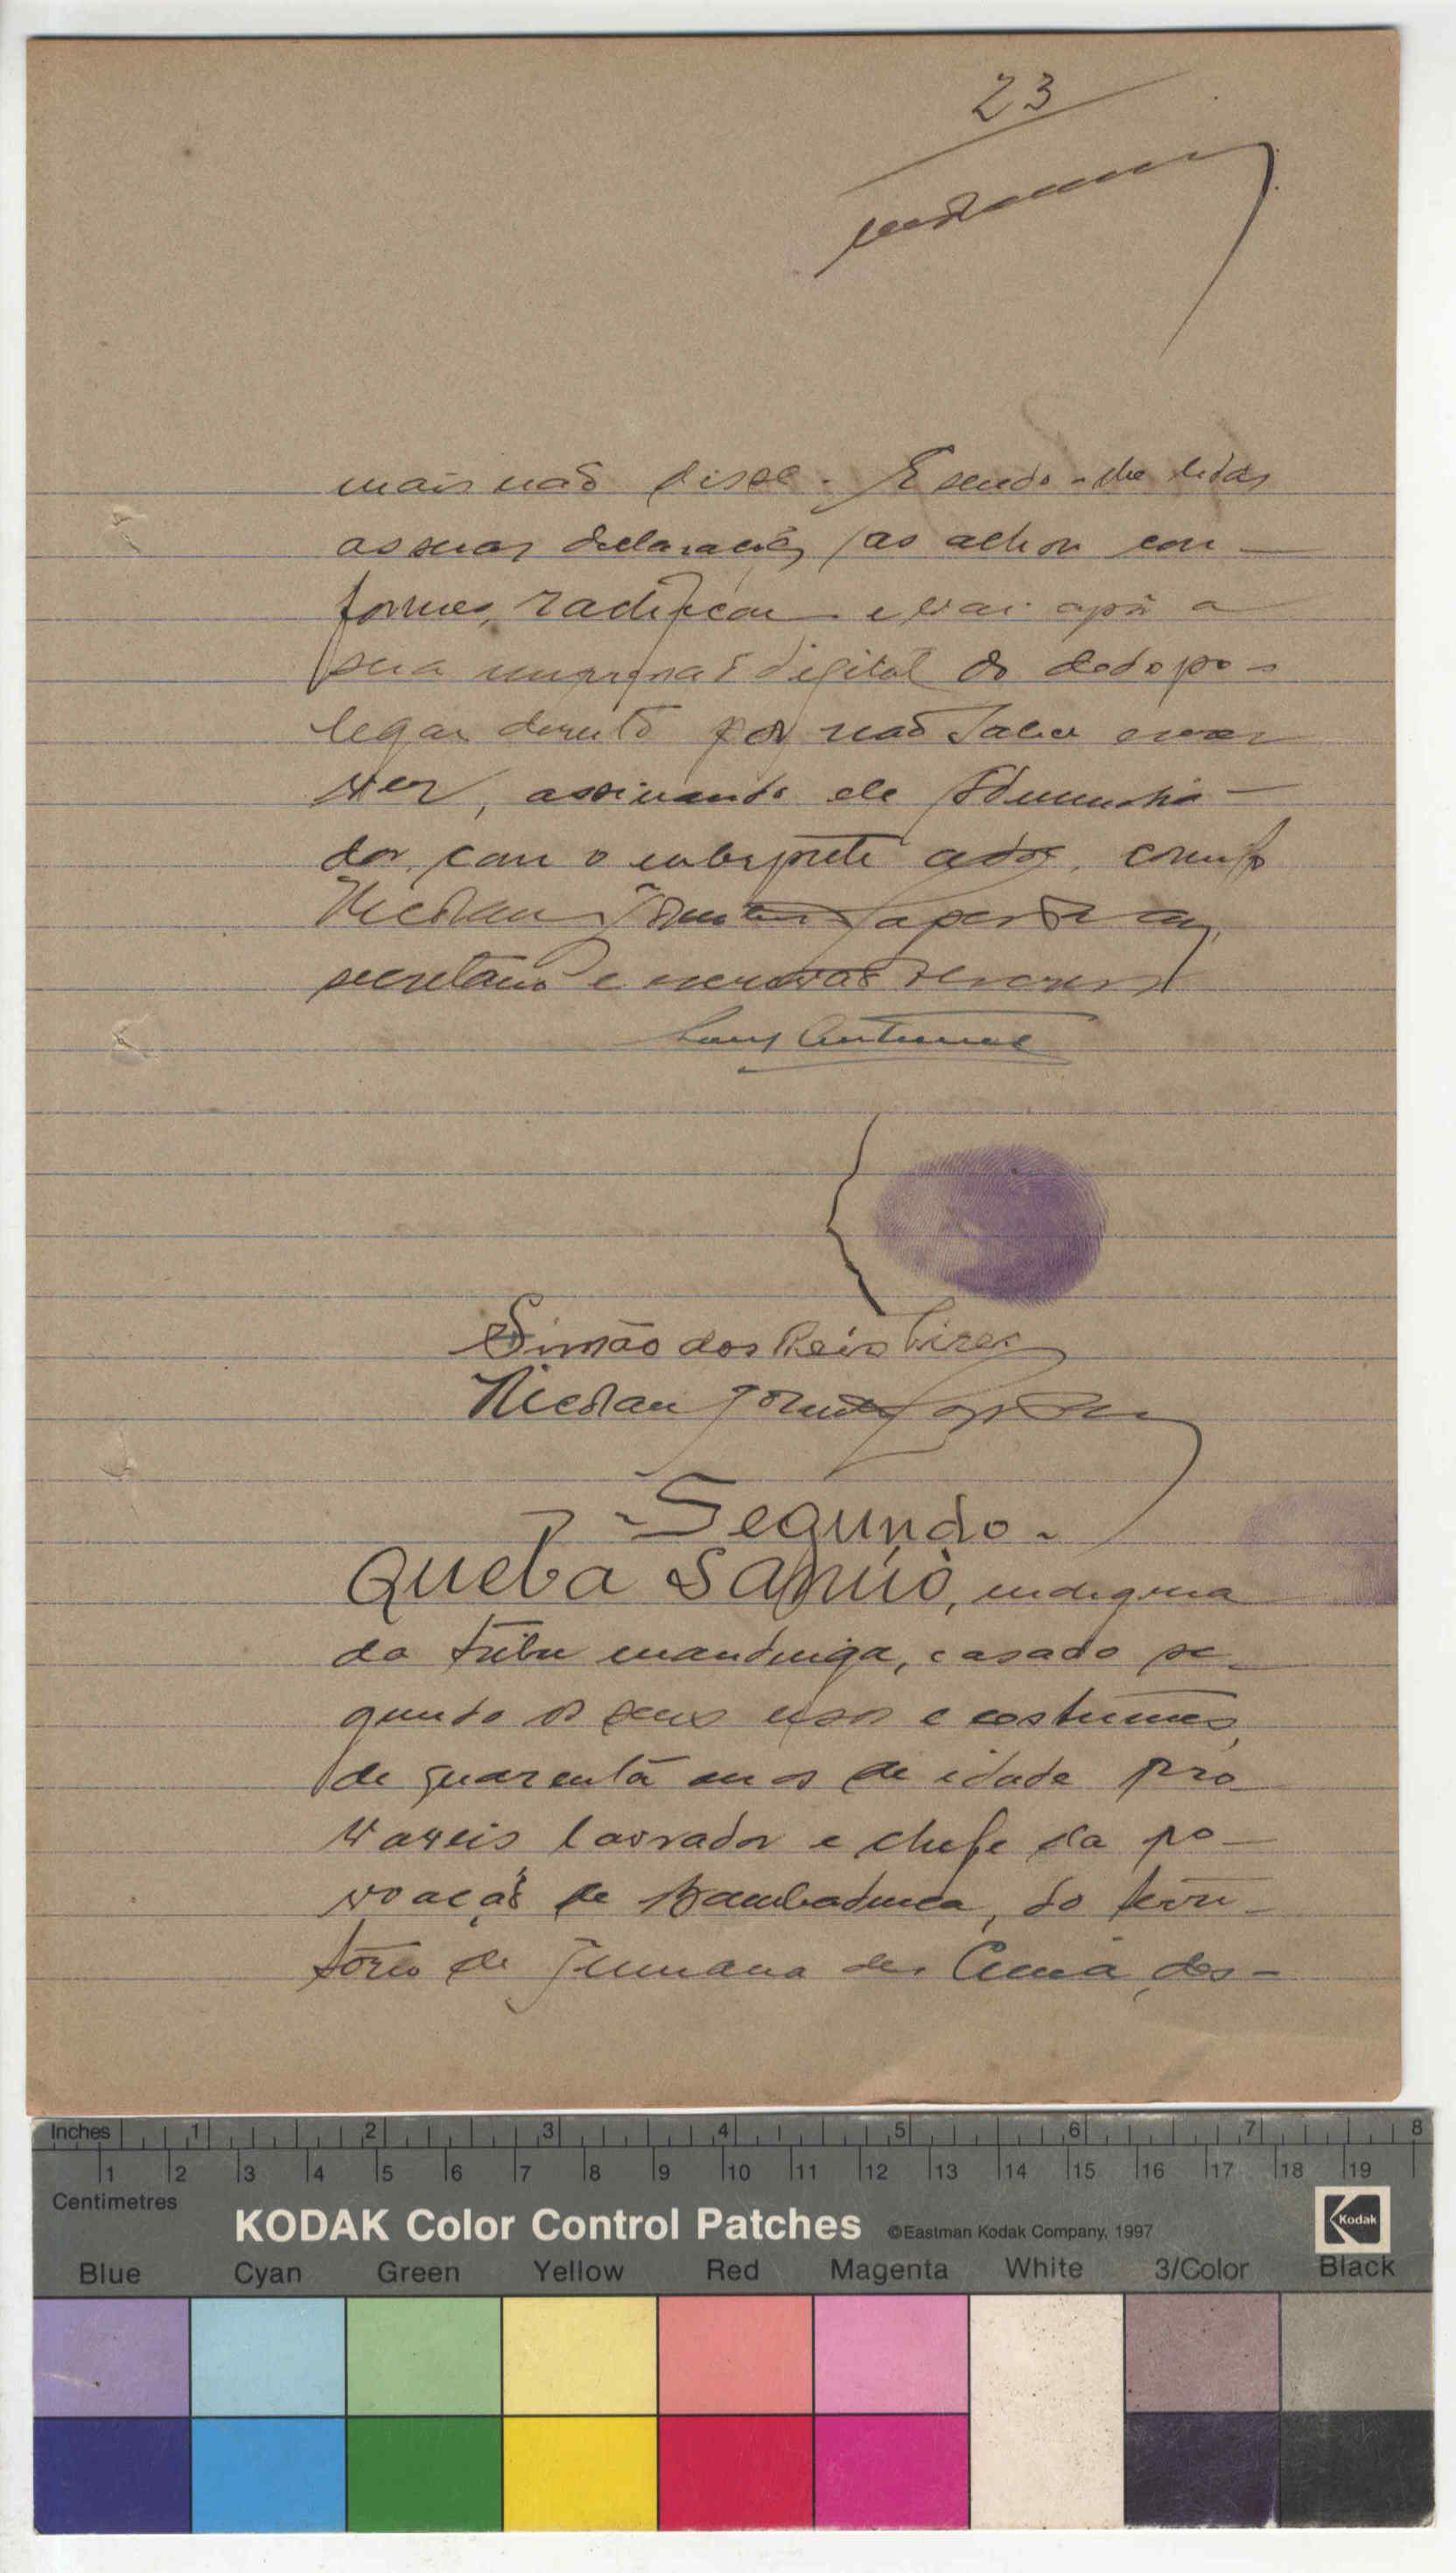 23
mais não disse. E sendo-lhe lidas
as suas declarações, as achou con-
formes, ratificou e vai apôr a
sua impressão digital do dedo po-
legar direito por não saber escre
ver, assinando ele Administra-
dor, com o interprete
Nicolau
secretário e escrivão
Luiz Antunes
Simão dos Reis Pires
Nicolau
- Segundo -
Queba Sanúò, indigena
da tribu mandinga, casado se-
gundo os seus usos e costumes,
de quarenta anos de idade pro
vaveis lavrador e chefe da po-
voação de Bambadinca, do terri-
tório de de Cuiá, des-
Inches 1 2 3 4 5 6 7 8
1 2 3 4 5 6 7 8 9 10 11 12 13 14 15 16 17 18 19
Centimetres
KODAK Color Control Patches ©Eastman Kodak Company, 1997 Kodak
Blue Cyan Green Yellow Red Magenta White 3/Color Black